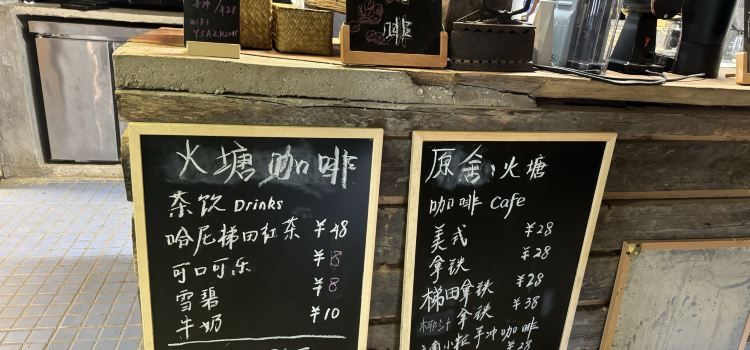 WIFI
啡
火塘咖啡
茶饮 Drinks
哈尼梯田红茶 ¥48
可口可乐 ¥8
雪碧 ¥8
牛奶 ¥10
原舍·火塘
咖啡 Cafe
美式 ¥28
拿铁 ¥28
梯田拿铁 ¥28
椰汁拿铁 ¥38
小粒手冲咖啡
¥28